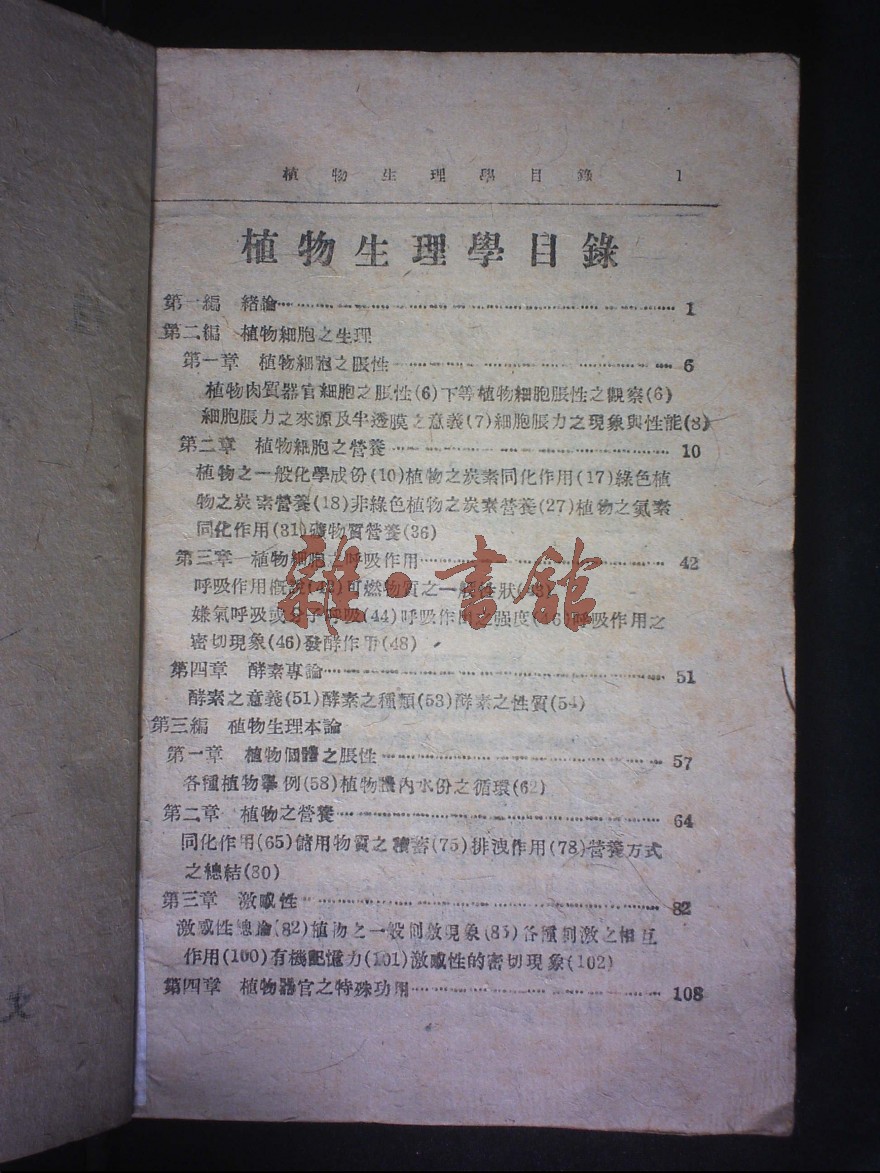 植物生理學目錄 1
植物生理學目錄
第一編 緒論 1
第二編 植物細胞之生理
第一章 植物細胞之脹性 6
植物肉質器官細胞之脹性(6)下等植物細胞脹性之觀察(6)
細胞脹力之來源及半透膜之意義(7)細胞脹力之現象與性能(8)
第二章 植物細胞之營養 10
植物之一般化學成份(10)植物之炭素同化作用(17)綠色植
物之炭素營養(18)非綠色植物之炭素營養(27)植物之氮素
同化作用(31)礦物質營養(36)
第三章 植物細胞之呼吸作用 42
呼吸作用概說(42)可燃物質之一般性狀(43)
嫌氣呼吸或分子呼吸(44)呼吸作用之强度(46)呼吸作用之
密切現象(46)發酵作用(48)
第四章 酵素專論 51
酵素之意義(51)酵素之種類(53)酵素之性質(54)
第三編 植物生理本論
第一章 植物個體之脹性 57
各種植物舉例(58)植物體內水份之循環(62)
第二章 植物之營養 64
同化作用(65)備用物質之積蓄(75)排洩作用(78)營養方式
之總結(30)
第三章 激感性 82
激感性總論(82)植物之一般 現象(83)各種刺激之相互
作用(100)有機記憶力(101)激感性的密切現象(102)
第四章 植物器官之特殊功用 108
雜·書館